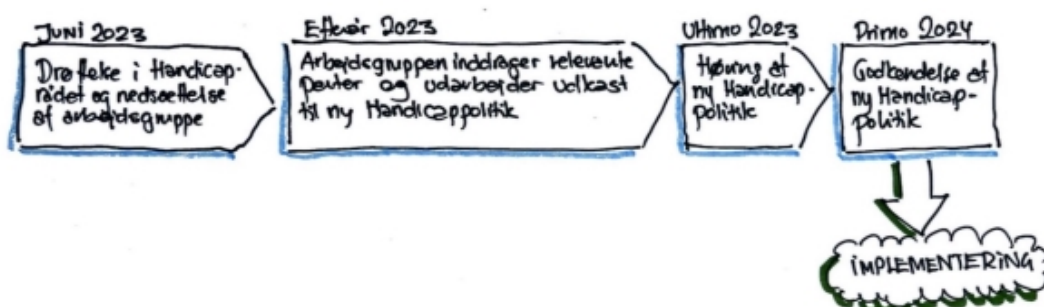 Juni 2023
Drøftelse i Handicap-
rådet og nedsættelse
af arbejdsgruppe
Efterår 2023
Arbejdsgruppen inddrager relevante
parter og udarbejder udkast
til ny Handicappolitik
Ultimo 2023
Høring af
ny Handicap-
politik
Primo 2024
Godkendelse af
ny Handicap-
politik
IMPLEMENTERING